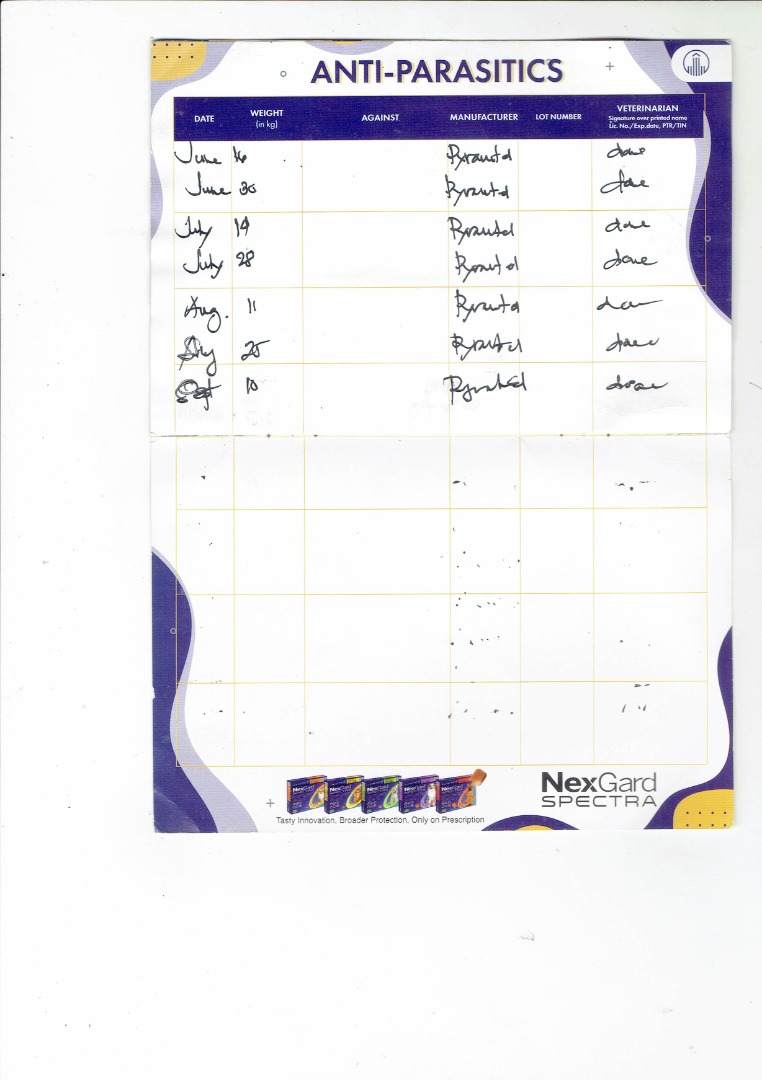 ANTI-PARASITICS
DATE WEIGHT (in kg) AGAINST MANUFACTURER LOT NUMBER VETERINARIAN
Signature over printed name
Lic. No./Exp.date, PTR/TIN
June 16 Pyrantel done
June 30 Pyrantel done
July 14 Pyrantel done
July 28 Pyrantel done
Aug. 11 Pyrantel done
Aug 25 Pyrantel done
Sept 10 Pyrantel done
NexGard
SPECTRA
Tasty Innovation, Broader Protection, Only on Prescription